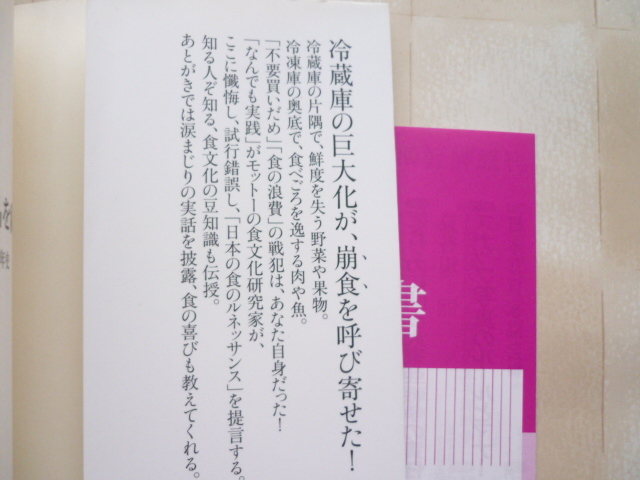 冷蔵庫の巨大化が、崩食を呼び寄せた！
冷蔵庫の片隅で、鮮度を失う野菜や果物。
冷凍庫の奥底で、食べごろを逸する肉や魚。
「不要買いだめ」「食の浪費」の戦犯は、あなた自身だった！
「なんでも実践」がモットーの食文化研究家が、
ここに懺悔し、試行錯誤し、「日本の食のルネッサンス」を提言する。
知る人ぞ知る、食文化の豆知識も伝授。
あとがきでは涙まじりの実話を披露、食の喜びも教えてくれる。
書
を